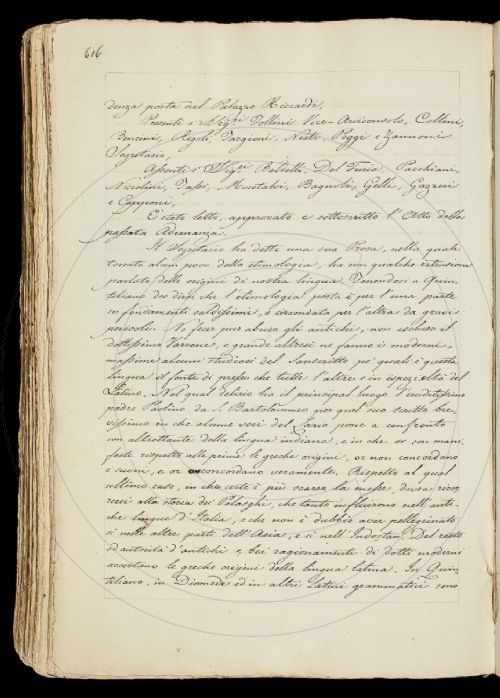 616
denza posta nel Palazzo Riccardi,
Presenti i Sigri Follini Vice-Arciconsolo, Collini,
Bencini, Rigoli, Targioni, Nesti, Poggi e Zannoni
Segretario,
Assenti i Sigri Baldelli, Del Furia, Pacchiani,
Niccolini, Tassi, Montalvi, Bagnoli, Gelli, Gazzeri
e Capponi,
E' stato letto, approvato e sottoscritto l'Atto della
passata Adunanza.
Il Segretario ha detto una sua Prosa, nella quale
toccato alcun poco della etimologia, ha con qualche estensione
parlato delle origini di nostra lingua. Venendosi a Quin-
tiliano dee dirsi che l'etimologia posta è per l'una parte
in fondamenti saldissimi, è circondata per l'altra da gravi
pericoli. Ne fecer pur abuso gli antichi, non escluso il
dottissimo Varrone, e grande altresì ne fanno i moderni,
massime alcuni studiosi del Sanscritto pe' quali è questa
lingua il fonte di presso che tutte l'altre e in ispezialtà del
Latino. Nel qual delirio ha il principal luogo l'eruditissimo
padre Paolino da S. Bartolommeo per quel suo scritto bre-
vissimo in che alcune voci del Lazio pone a confronto
con altrettante della lingua indiana, e in che or son mani-
feste rispetto alle prime le greche origini, or non concordano
i suoni, e or concordano veramente. Rispetto al qual
ultimo caso, in che certo è più scarsa la messe, dovea ricor
rersi alla storia dei Pelasghi, che tanto influirono nell'anti-
che lingue d'Italia, e che non è dubbio aver pellegrinato
sì nelle altre parti dell'Asia, e sì nell'Indostan. Del resto
ed autorità d'antichi e bei ragionamenti di dotti moderni
accertano le greche origini della lingua latina. In Quin-
tiliano, in Diomede ed in altri Latini grammatici sono